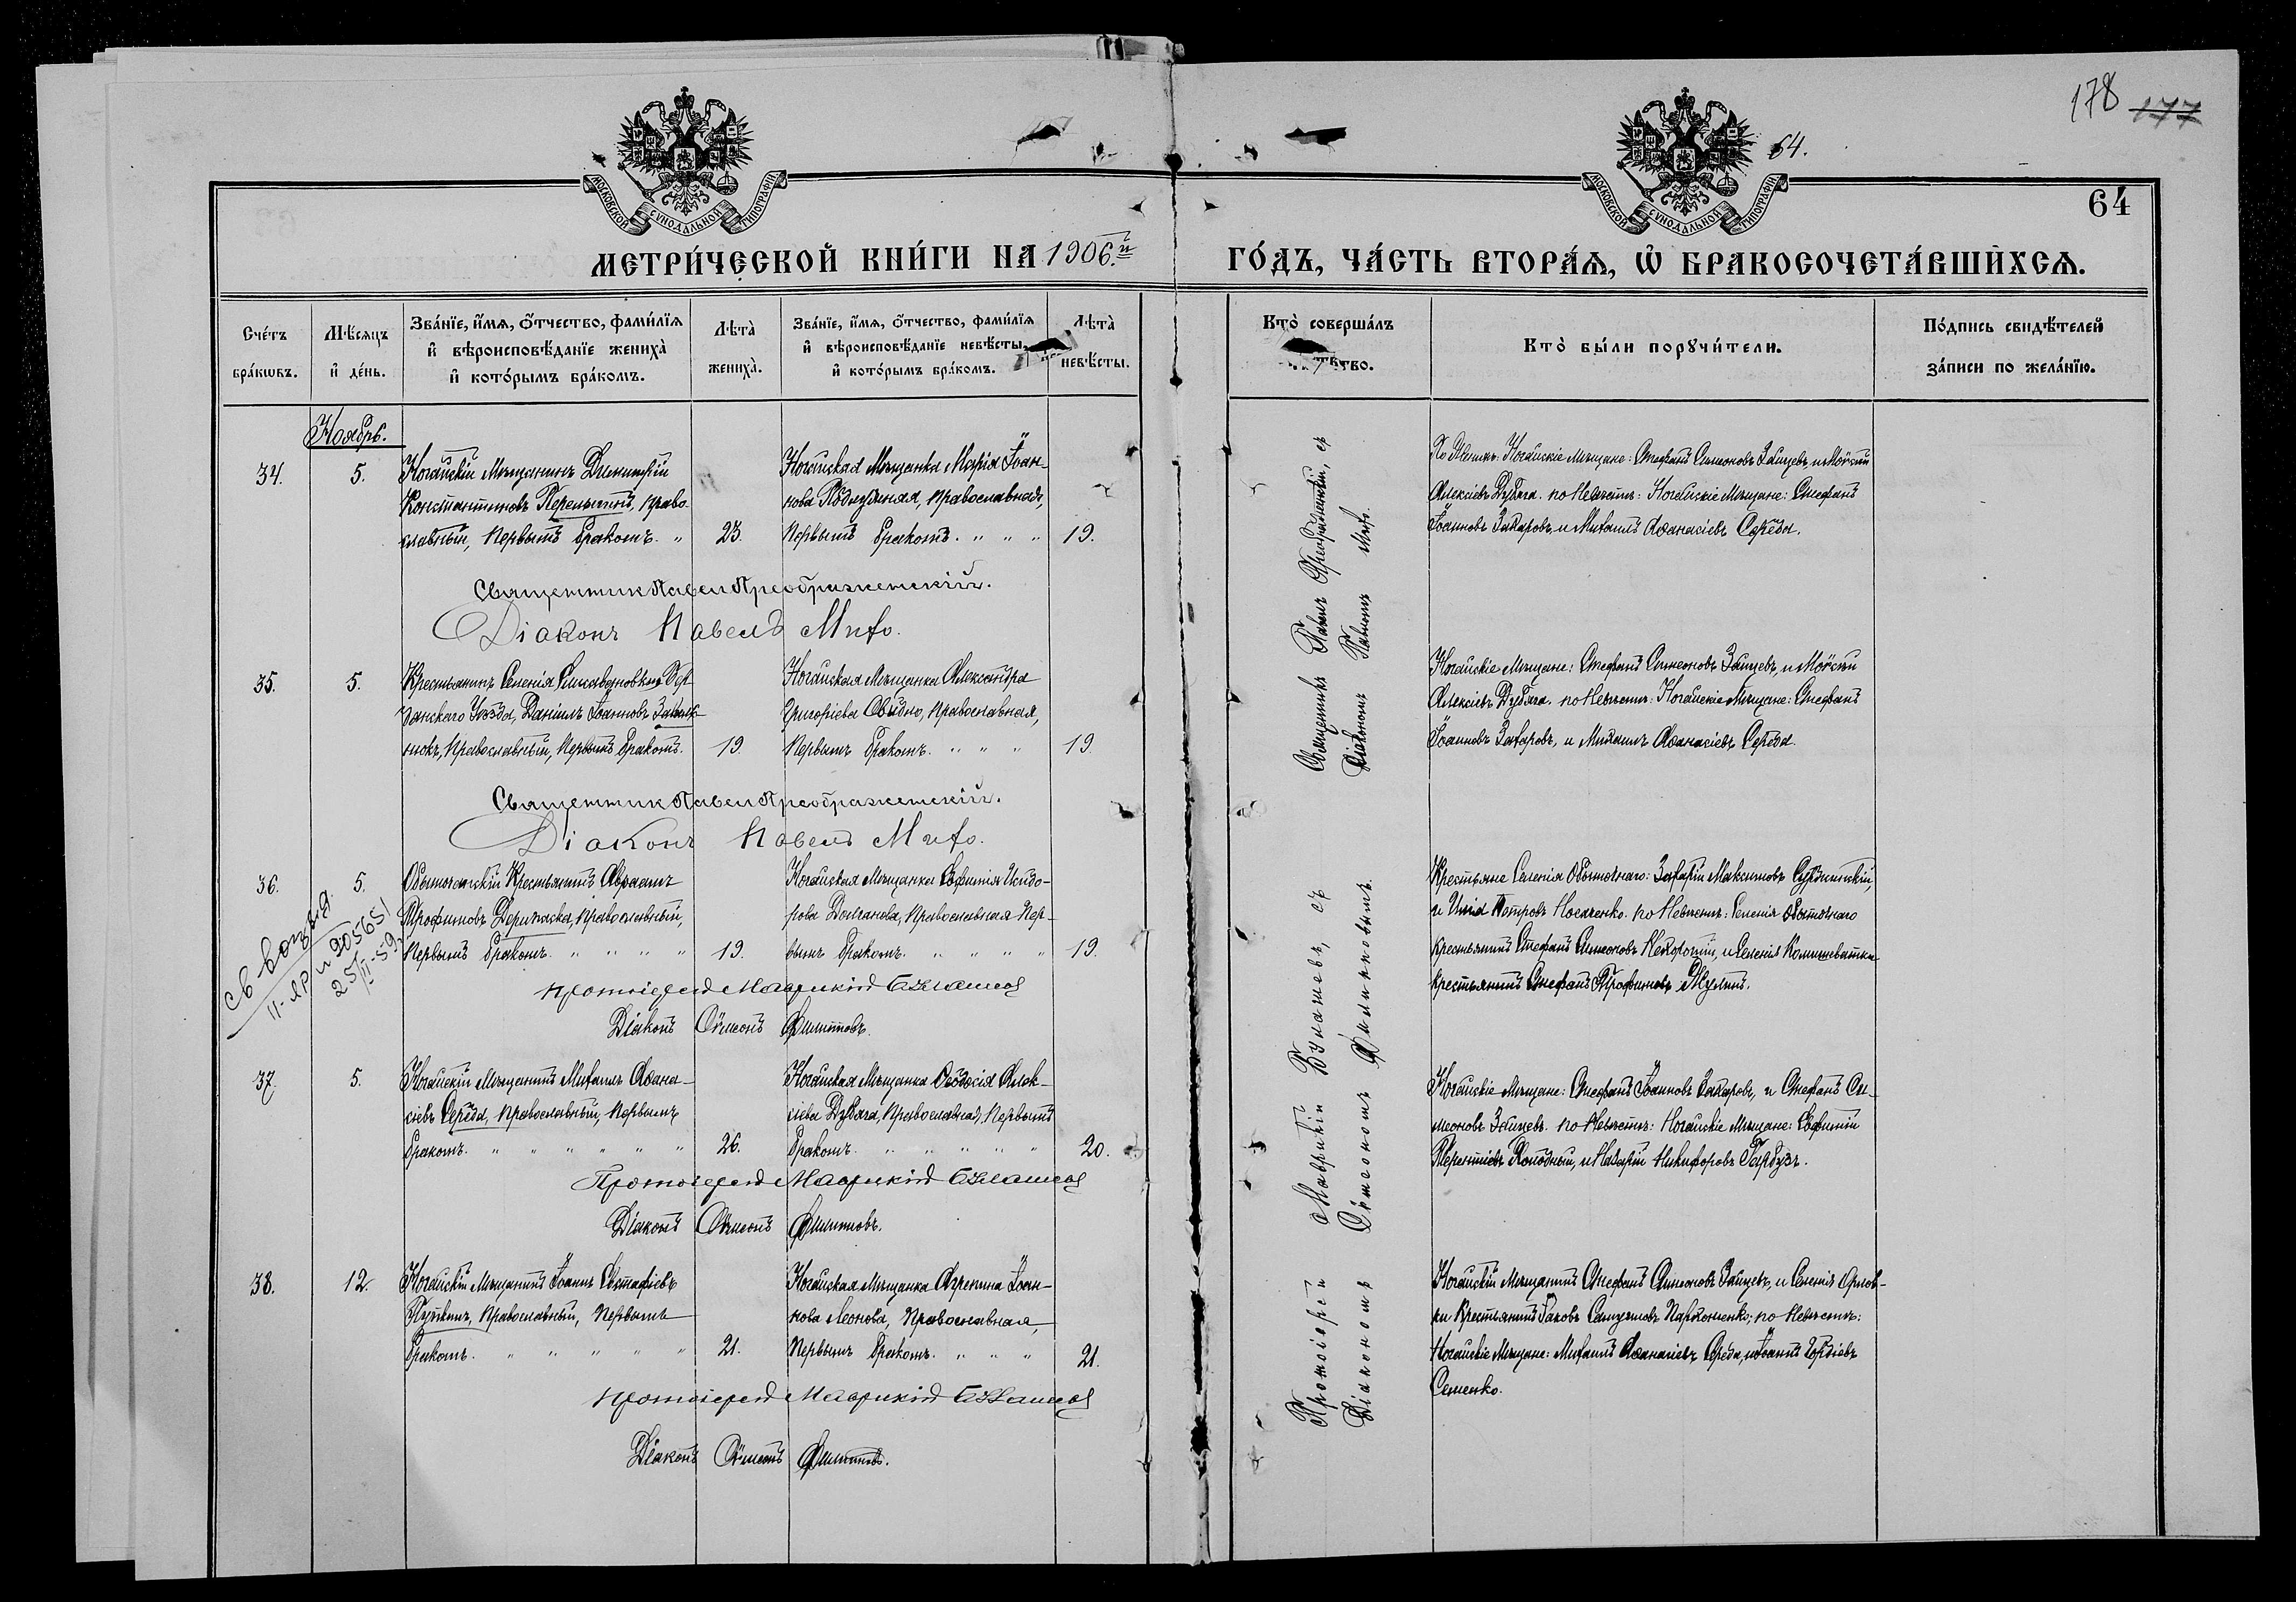 178 177
64.
64
МОСКОВСКОЙ СѴНОДАЛЬНОЙ ТИПОГРАФІИ
МОСКОВСКОЙ СѴНОДАЛЬНОЙ ТИПОГРАФІИ
МЕТРИ́ЧЕСКОЙ КНИ́ГИ НА 1906.й ГО́ДЪ, ЧА́СТЬ ВТОРА́Ѧ, Ѽ БРАКОСОЧЕТА́ВШИХСѦ.
Сче́тъ бра́кѡвъ.
Мѣ́сѧцъ и҆ де́нь.
Зва́нїе, и҆́мѧ, ѻ҆́тчество, фами́лїѧ и҆ вѣроисповѣ́данїе жениха̀ и҆ кото́рымъ бра́комъ.
Лѣта̀ жениха̀.
Зва́нїе, и҆́мѧ, ѻ҆́тчество, фами́лїѧ и҆ вѣроисповѣ́данїе невѣ́сты, и҆ кото́рымъ бра́комъ.
Лѣта̀ невѣ́сты.
Кто̀ соверша́лъ
Кто̀ бы́ли порꙋчи́тели.
По́дпись свидѣ́телей за́писи по жела́нїю.
Ноябрь.
34.
5.
Ногайскій Мѣщанинъ Димитрій
Константиновъ православный, Первымъ бракомъ. "
23.
Ногайская Мѣщанка Марія Іоаннова православная,
Первымъ бракомъ. " " "
19.
По Жених: Ногайскіе Мѣщане: Стефанъ Симеоновъ Зайцевъ, и Моѵсей
Алексіевъ Дубяга. по Невѣстѣ: Ногайскіе Мѣщане: Стефанъ
Іоанновъ Захаровъ, и Михаилъ Аѳанасіевъ Середа.
Священникъ Павелъ Преображенскій.
Діаконъ Павелъ Михо.
Священникъ Павелъ Преображенскій, съ
Діакономъ Павломъ Михо.
35.
5.
Крестьянинъ Селенія Бердянскаго Уѣзда, Даніилъ Іоанновъ
Православный, Первымъ бракомъ.
19.
Ногайская Мѣщанка Александра
Григоріева Православная,
Первымъ бракомъ. " " "
19.
Ногайскіе Мѣщане: Стефанъ Симеоновъ Зайцевъ, и Моѵсей
Алексіевъ Дубяга. по Невѣстѣ: Ногайскіе Мѣщане: Стефанъ
Іоанновъ Захаровъ, и Михаилъ Аѳанасіевъ Середа.
Священникъ Павелъ Преображенскій.
Діаконъ Павелъ Михо.
36.
5.
Обыточенскій Крестьянинъ Авраамъ
Трофимовъ Дерипаска, Православный,
Первымъ бракомъ. " " " "
19.
Ногайская Мѣщанка Евфимія Исидорова
Долганова, Православная Первымъ бракомъ. " " " "
19.
Крестьяне Селенія Обыточнаго: Захарій Максимовъ
и Петровъ Носаченко. по Невѣстѣ: Селенія Обыточнаго
крестьянинъ Стефанъ Симеоновъ и Селенія
Крестьянинъ Стефанъ Трофимовъ
25/II-59
Протоіерей Маврикій Букашевъ
Діаконъ Сѵмеонъ Филипповъ.
Протоіерей Маврикій Букашевъ, съ
Діакономъ Сѵмеономъ Филипповымъ.
37.
5.
Ногайскій Мѣщанинъ Михаилъ Аѳанасіевъ
Середа, православный, Первымъ
бракомъ. " " " " " "
26.
Ногайская Мѣщанка Ѳеодосія Алексіева
Дубяга, Православная, Первымъ
бракомъ. " " " " "
20.
Ногайскіе Мѣщане: Стефанъ Іоанновъ Захаровъ, и Стефанъ Симеоновъ
Зайцевъ. по Невѣстѣ: Ногайскіе Мѣщане: Евфимій
Терентіевъ Холодный, и Назарій Никифоровъ Гарбузъ.
Протоіерей Маврикій Букашевъ
Діаконъ Сѵмеонъ Филипповъ.
38.
12.
Ногайскій Мѣщанинъ Іоаннъ Евстафіевъ
Православный, Первымъ
бракомъ. " " " " "
21.
Ногайская Мѣщанка Агрепина Іоаннова
Леонова, Православная,
Первымъ бракомъ. " " "
21.
Ногайскій Мѣщанинъ Стефанъ Симеоновъ Зайцевъ, и Селенія Орловки
Крестьянинъ Іаковъ Самуиловъ Пархоменко; по Невѣстѣ:
Ногайскіе Мѣщане: Михаилъ Аѳанасіевъ Середа, и Іоаннъ Гордіевъ
Семенко.
Протоіерей Маврикій Букашевъ
Діаконъ Сѵмеонъ Филипповъ.